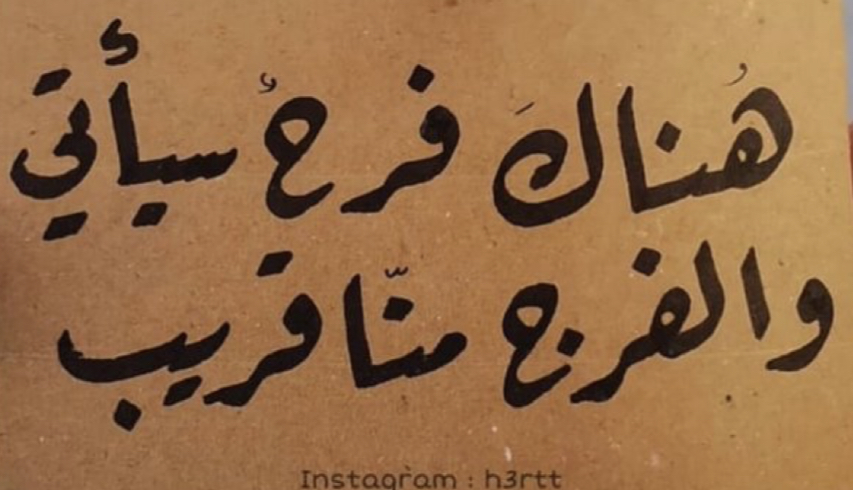 هُناكَ فرحٌ سيأتي
والفرج منّا قريب
Instagram : h3rtt